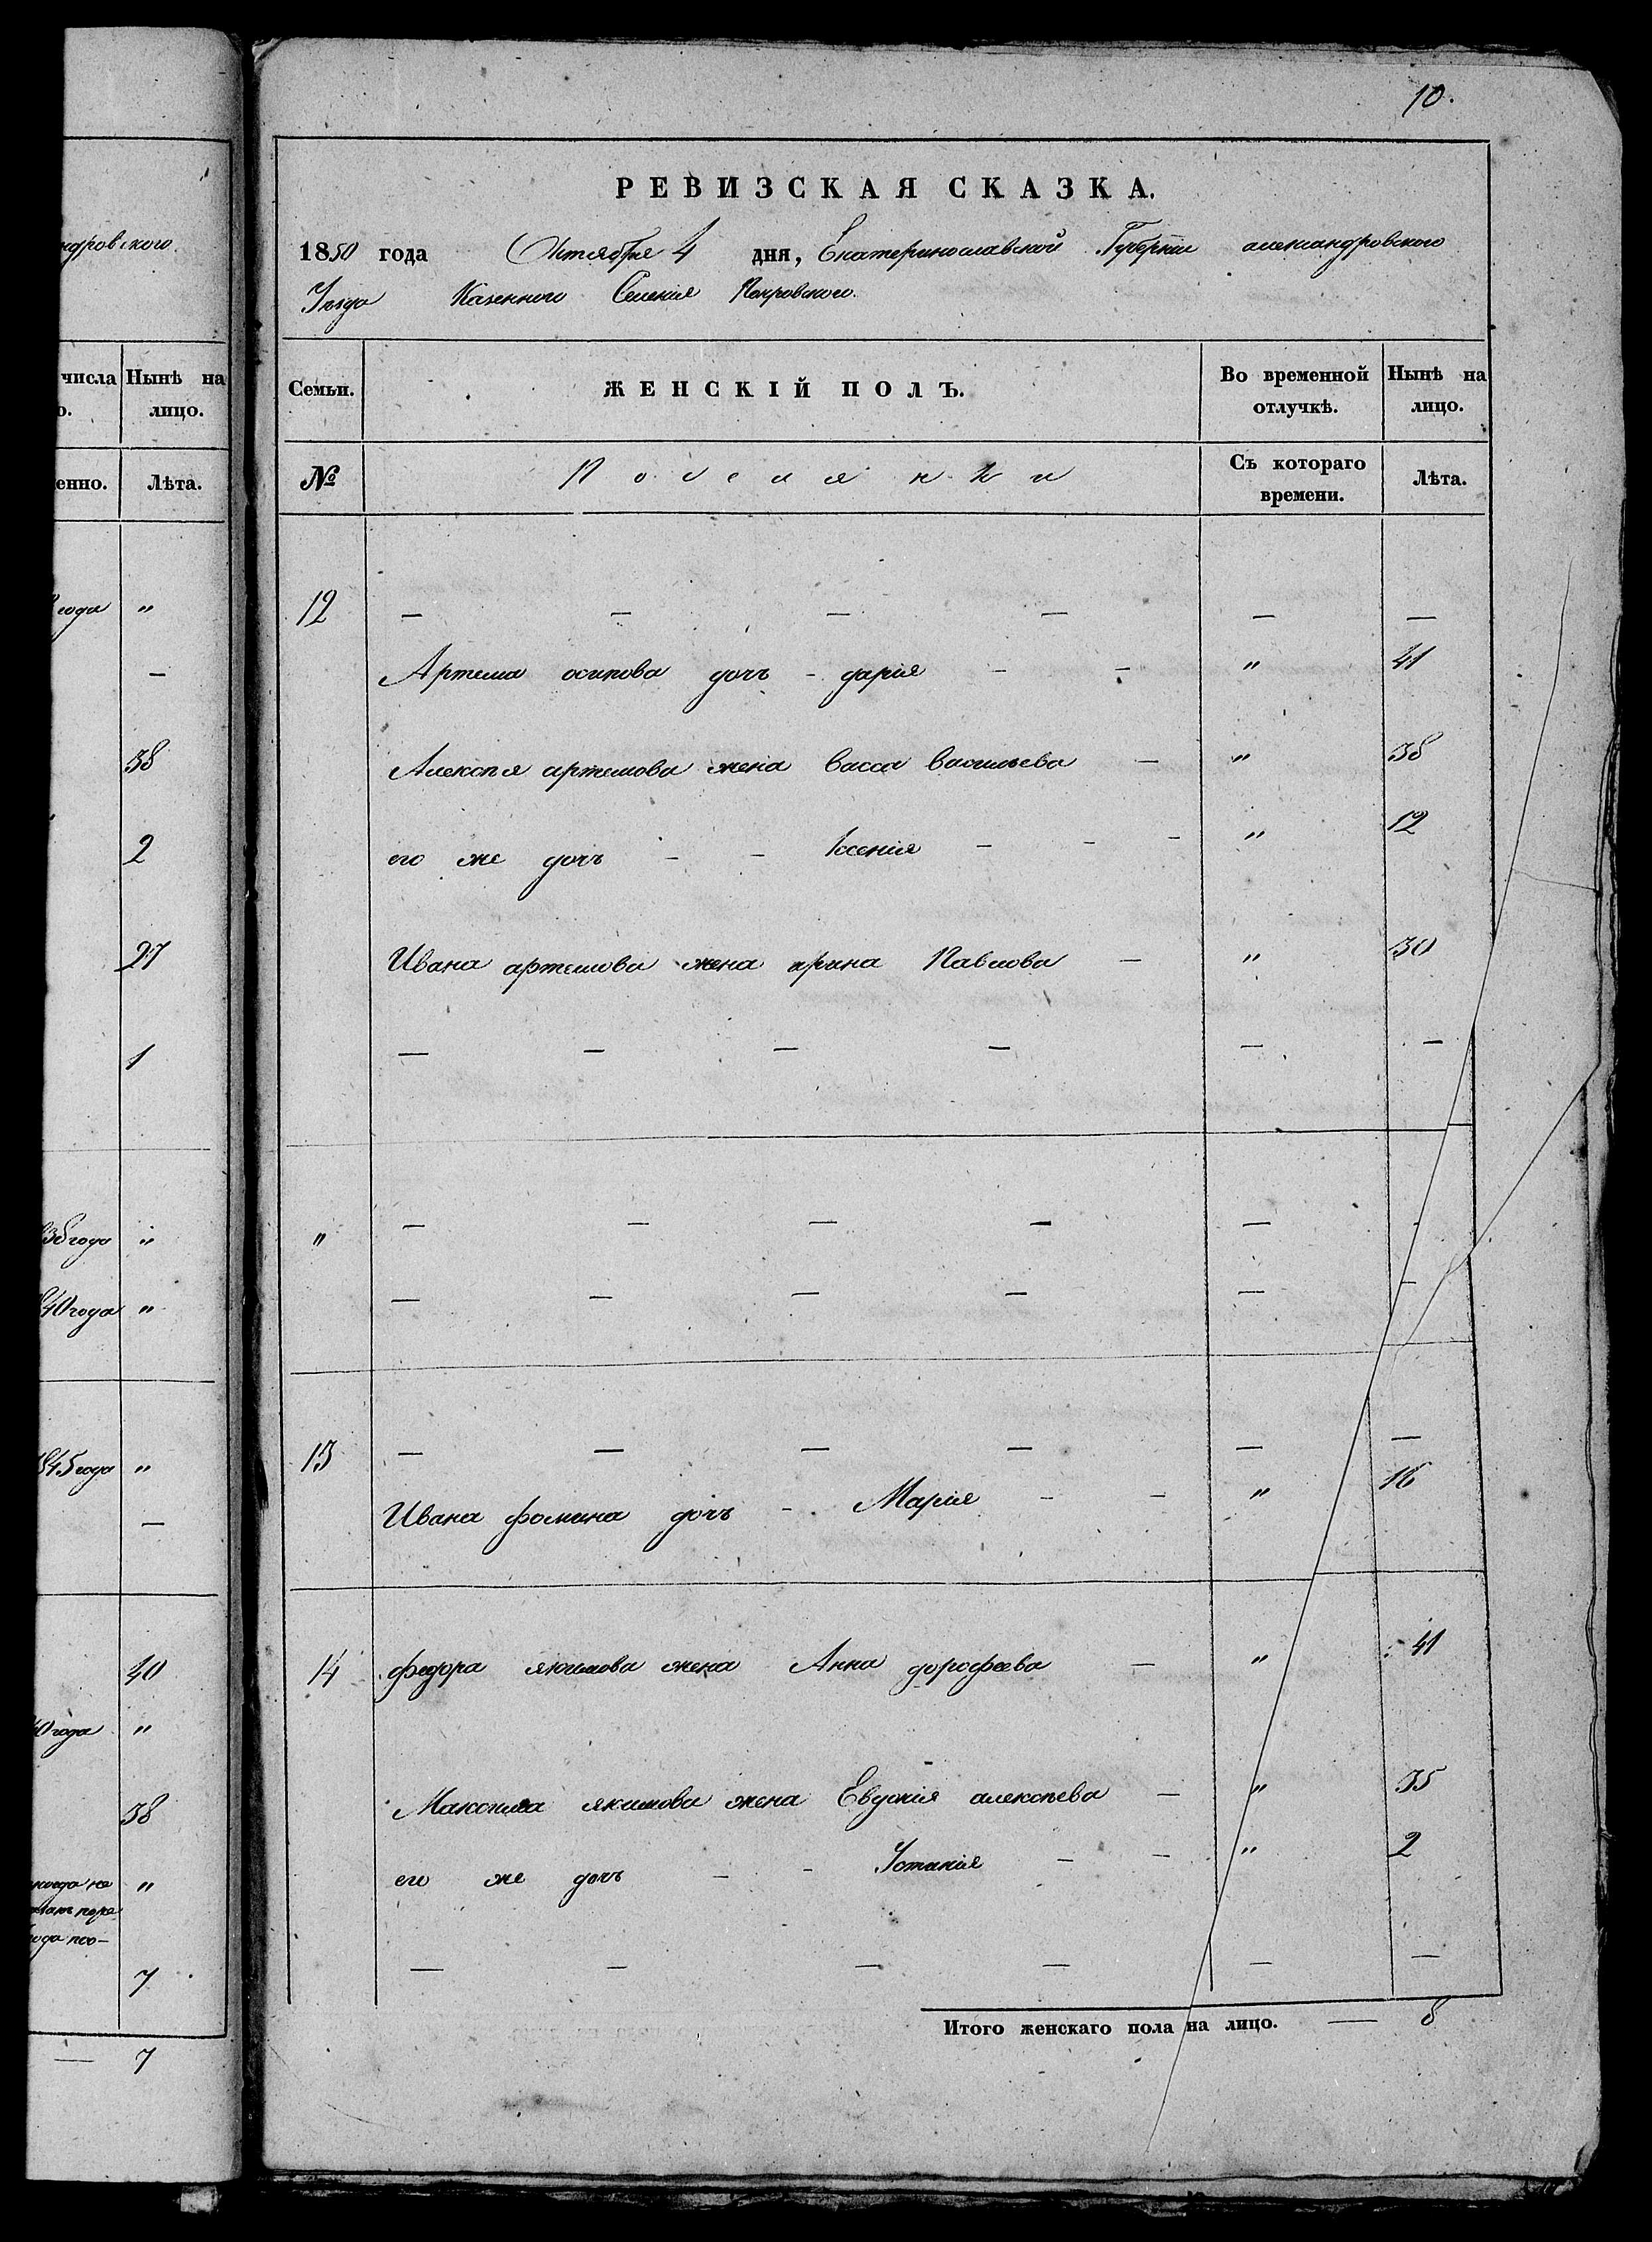 ндровского.
числа Нынѣ на
о. лицо.
енно. Лѣта.
года "
—
38
2
27
1
38 года "
40 года "
845 года "
—
40
40 года "
38
"
7
— 7
10.
РЕВИЗСКАЯ СКАЗКА.
1850 года Октября 4 дня, Екатеринославской Губернии александровского
Уезда Казенного Селения Покровского.
Семьи. ЖЕНСКІЙ ПОЛЪ. Во временной отлучкѣ. Нынѣ на лицо.
№ Поселянки Съ котораго времени. Лѣта.
12 — — — — — —
Артема осипова дочь - дария - - " 41
Алексѣя артемова жена васса васильева — " 38
его же дочь - - Ксенія - - - " 12
Ивана артемова жена ирина Павлова — " 30
— — — — — —
" — — — — — -
— — — — — —
13 — — — — — —
Ивана фомина дочь - Марія - - " 16
14 федора якимова жена Анна дорофеева — " 41
Максима якимова жена Евдокія алексѣева — " 35
его же дочь - - Устинія - - " 2
— — — — — —
Итого женскаго пола на лицо. — 8